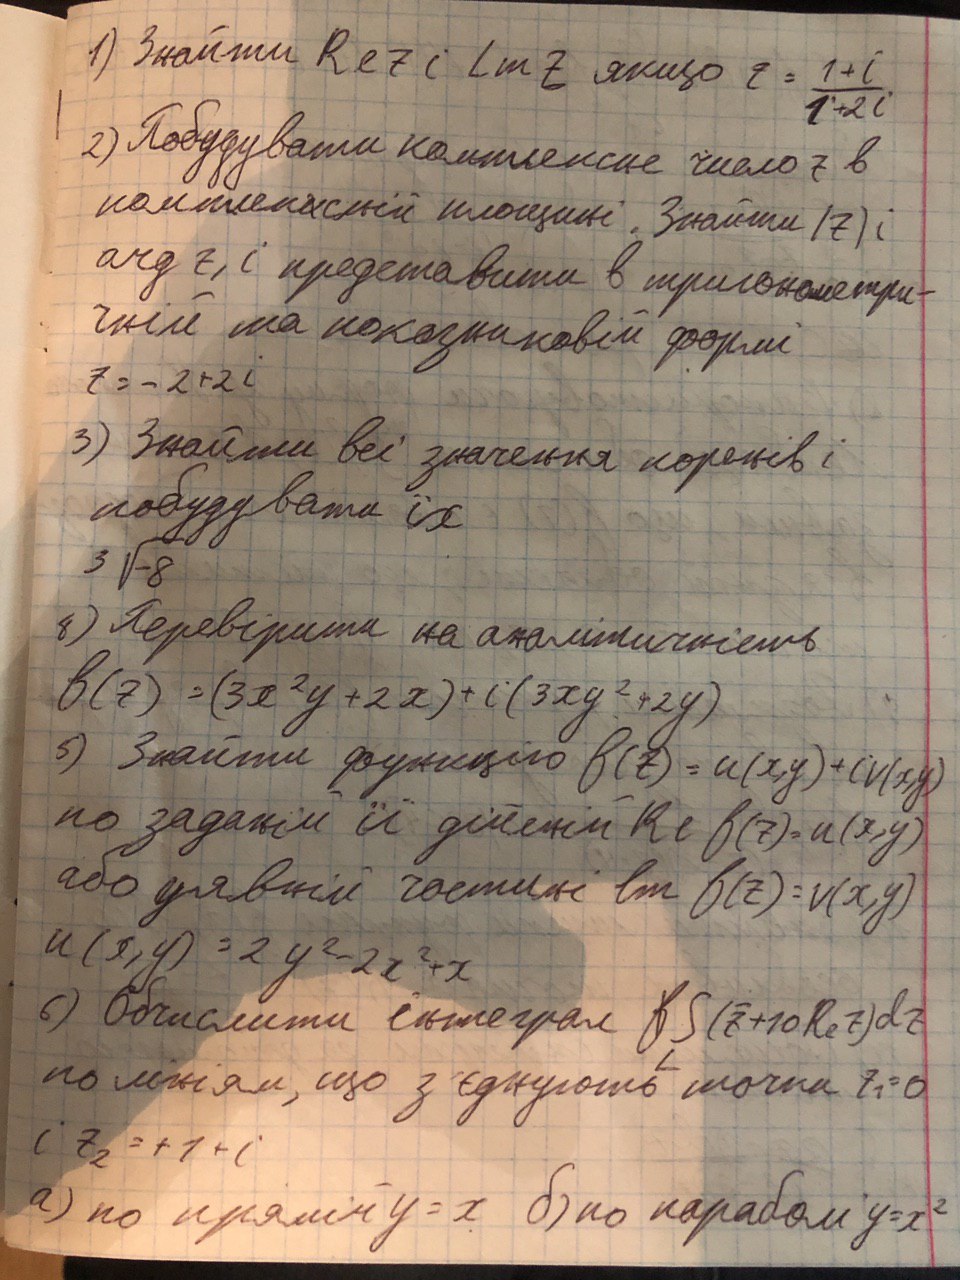 1) Знайти Re z i Im z якщо z = 1+i / 1+2i
2) Побудувати комплексне число z в
комплексній площині. Знайти |z| і
arg z, і представити в тригонометри-
чній та показниковій формі
z = -2+2i
3) Знайти всі значення коренів і
побудувати їх
³√-8
4) Перевірити на аналітичність
f(z) = (3x²y+2x)+i(3xy²+2y)
5) Знайти функцію f(z) = u(x,y)+iv(x,y)
по заданій її дійсній Re f(z)=u(x,y)
або уявній частині Im f(z)=v(x,y)
u(x,y) = 2y²-2x²+x
6) Обчислити інтеграл ∫(z̄+10Re z)dz
L
по лініям, що з'єднують точки z₁=0
i z₂=+1+i
а) по прямій y=x б) по параболі y=x²